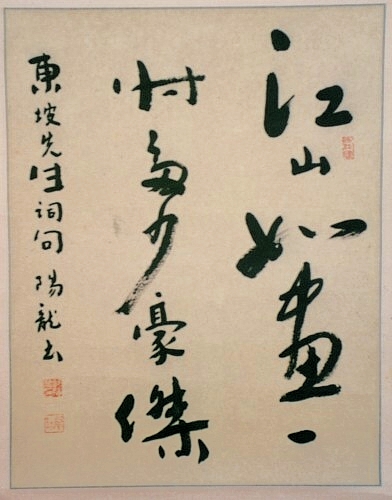 江山如画一
时多少豪傑
東坡先生詞句 陽龍书